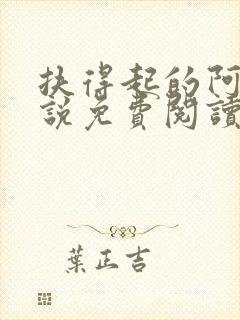 扶得起的阿
說免費閱讀
葉正吉